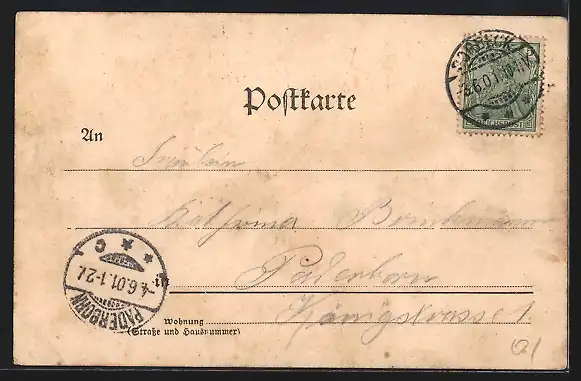 Postkarte
3.6.01.
REICHSPOST
An
Fräulein
Brinkmann
in
Paderborn
Königstrasse 1.
Wohnung
(Straße und Hausnummer)
PADERBORN
4.6.01.1-2N.
* * C
01